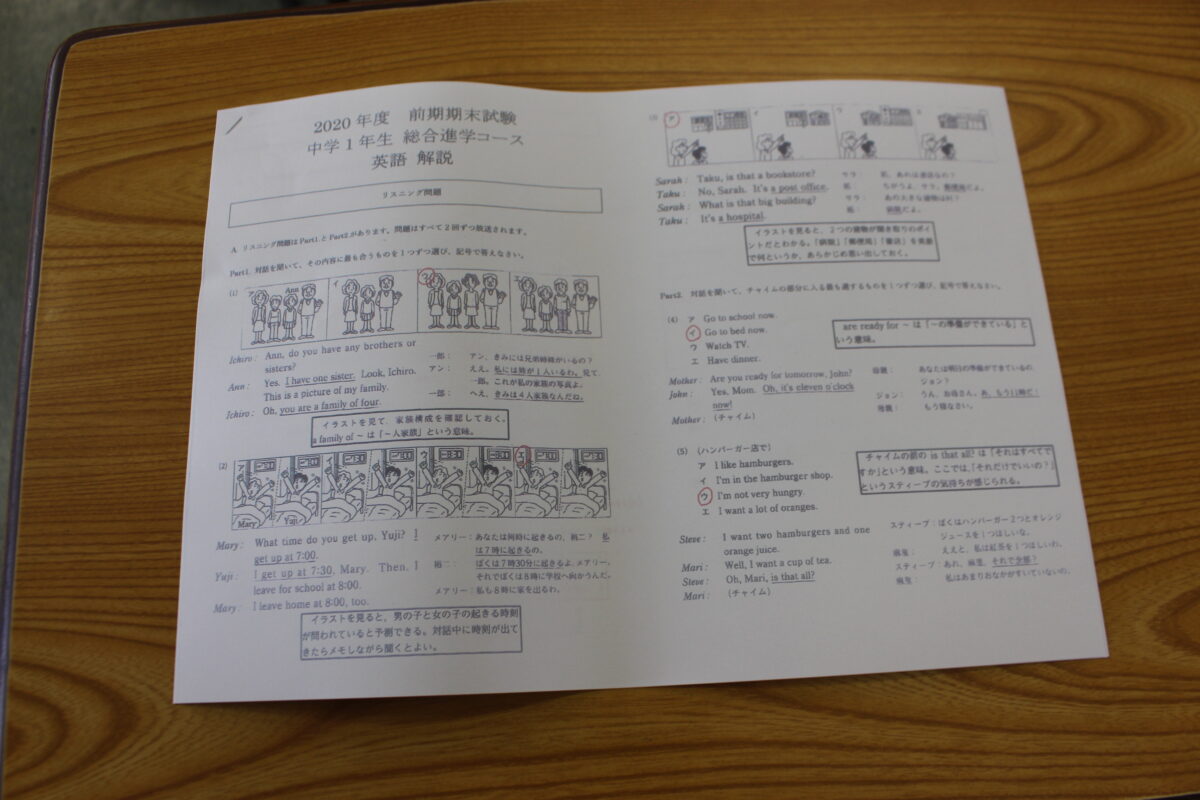 2020 年度 前期期末試験
中学1年生 総合進学コース
英語 解説
リスニング問題
A. リスニング問題は Part1.と Part2.があります。問題はすべて2回ずつ放送されます。
Part1. 対話を聞いて、その内容に最も合うものを1つずつ選び、記号で答えなさい。
(1) ア Ann イ ウ エ
Ichiro : Ann, do you have any brothers or
sisters?
Ann : Yes. I have one sister. Look, Ichiro.
This is a picture of my family.
Ichiro : Oh, you are a family of four.
一郎： アン、きみには兄弟姉妹がいるの？
アン： ええ。私には姉が1人いるわ。見て、
一郎。これが私の家族の写真よ。
一郎： へえ、きみは4人家族なんだね。
イラストを見て、家族構成を確認しておく。
a family of ~ は「~人家族」という意味。
(2) ア イ ウ エ
Mary Yuji
Mary : What time do you get up, Yuji? I
get up at 7:00.
Yuji : I get up at 7:30, Mary. Then, I
leave for school at 8:00.
Mary : I leave home at 8:00, too.
メアリー：あなたは何時に起きるの、裕二？ 私
は7時に起きるの。
裕二： ぼくは7時30分に起きるよ、メアリー。
それでぼくは8時に学校へ向かうんだ。
メアリー：私も8時に家を出るわ。
イラストを見ると、男の子と女の子の起きる時刻
が問われていると予測できる。対話中に時刻が出て
きたらメモしながら聞くとよい。
(3) ア イ ウ エ
Sarah : Taku, is that a bookstore?
Taku : No, Sarah. It's a post office.
Sarah : What is that big building?
Taku : It's a hospital.
サラ： 拓、あれは書店なの？
拓： ちがうよ、サラ。郵便局だよ。
サラ： あの大きな建物は何？
拓： 病院だよ。
イラストを見ると、2つの建物が聞き取りのポイ
ントだとわかる。「病院」「郵便局」「書店」を英語
で何というか、あらかじめ思い出しておく。
Part2. 対話を聞いて、チャイムの部分に入る最も適するものを1つずつ選び、記号で答えなさい。
(4) ア Go to school now.
イ Go to bed now.
ウ Watch TV.
エ Have dinner.
are ready for ~ は「~の準備ができている」と
いう意味。
Mother : Are you ready for tomorrow, John?
John : Yes, Mom. Oh, it's eleven o'clock
now!
Mother : (チャイム)
母親： あなたは明日の準備ができているの
ジョン？
ジョン： うん、お母さん。あ、もう11時だ！
母親： もう寝なさい。
(5) (ハンバーガー店で)
ア I like hamburgers.
イ I'm in the hamburger shop.
ウ I'm not very hungry.
エ I want a lot of oranges.
チャイムの前の is that all? は「それはすべてで
すか」という意味。ここでは、「それだけでいいの？」
というスティーブの気持ちが感じられる。
Steve : I want two hamburgers and one
orange juice.
Mari : Well, I want a cup of tea.
Steve : Oh, Mari, is that all?
Mari : (チャイム)
スティーブ：ぼくはハンバーガー2つとオレンジ
ジュースを1つほしいな。
麻里： ええと、私は紅茶を1つほしいわ。
スティーブ：あれ、麻里、それで全部？
麻里： 私はあまりおなかがすいていないの。